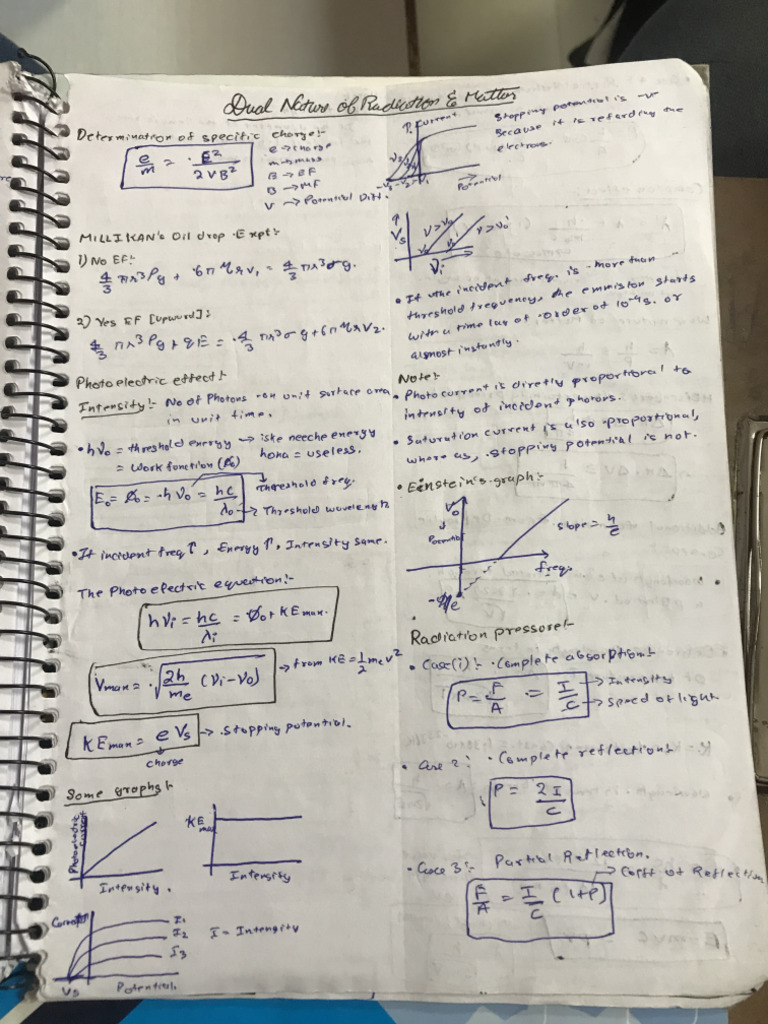 Dual Nature of Radiation & Matter
Determination of specific charge:-
e/m = E²/2VB²
e → charge
m → mass
B → EF
B → MF
V → Potential Diff.
MILLIKAN's Oil drop Expt:-
1) No EF:-
4/3 πr³ρg + 6πηrv₁ = 4/3 πr³σg.
2) Yes EF [upword]:-
4/3 πr³ρg + qE = 4/3 πr³σg + 6πηrv₂.
Photoelectric effect:-
Intensity:- No of Photons on unit surface area
in unit time.
• hν₀ = threshold energy → iske neeche energy
= Work function (ϕ₀) hona = useless.
E₀ = ϕ₀ = hν₀ = hc/λ₀
→ Threshold freq.
→ Threshold wavelength
• If incident freq ↑, Energy ↑, Intensity same.
The Photoelectric equation:-
hνi = hc/λi = ϕ₀ + KEmax.
Vmax = √(2h/me (νi - ν₀)) → from KE = 1/2 mev²
KEmax = eVs → Stopping potential.
charge
Some graphs:-
Photoelectric Current
Intensity.
KE max
Intensity
Current
I₁
I₂
I₃
Vs
Potential.
I = Intensity
P. Current
V₃
-V₃ -V₂ -V₁
Potential
Stopping potential is -ve
Because it is retarding the
electrons.
Vs
νi
• If the incident freq. is more than
threshold frequency, the emmision starts
with a time lag of order of 10⁻⁹s. or
almost instantly.
Note:-
• Photocurrent is diretly proportional to
intensity of incident photons.
• Saturation current is also proportional,
where as, stopping potential is not.
• Einstein's graph:-
V₀
Potential
slope = h/e
freq.
-ϕ/e
Radiation pressore:-
• Case(i):- Complete absorption:-
P = F/A = I/C
→ Intensity
→ Speed of light
• Case 2: Complete reflection:
P = 2I/C
• Case 3:- Partial Reflection.
F/A = I/C (1+ρ)
→ Coeft of Reflection